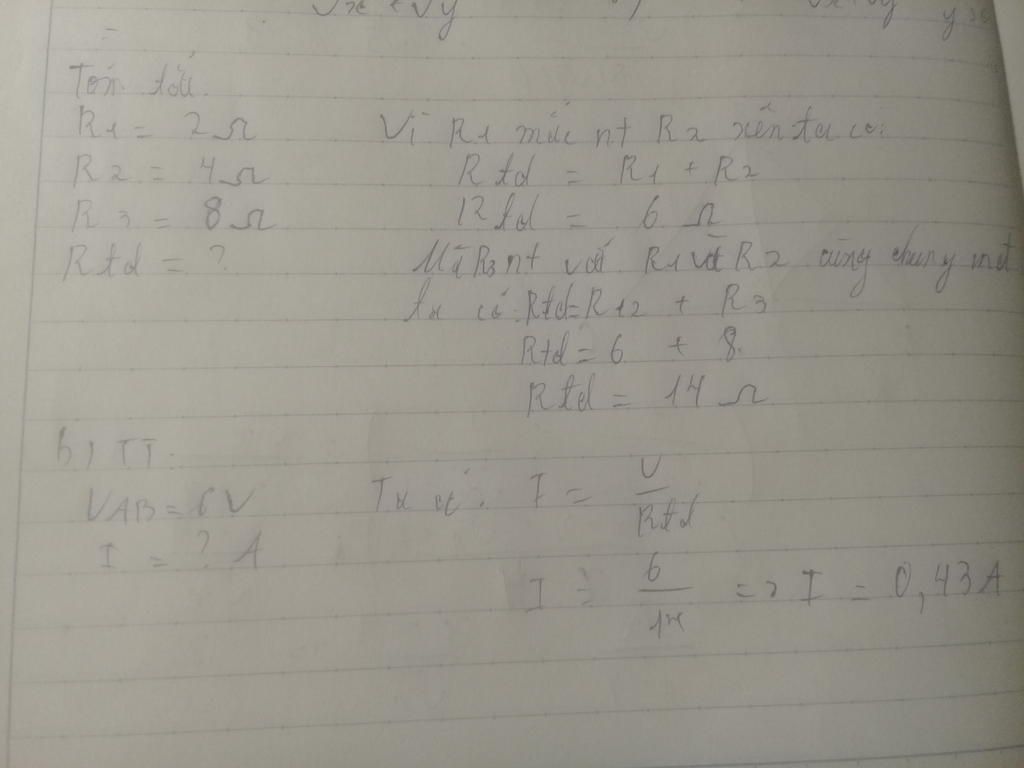 √x + √y
Tóm tắt
R1 = 2Ω
R2 = 4Ω
R3 = 8Ω
Rtd = ?
Vì R1 mắc nt R2 nên ta có:
Rtd = R1 + R2
Rtd = 6 Ω
Mà R3 nt với R1 và R2 cùng chung một
ta có: Rtd = R12 + R3
Rtd = 6 + 8
Rtd = 14 Ω
b) TT
UAB = 6V
I = ? A
Ta có: I = U / Rtd
I = 6 / 14 => I = 0,43A